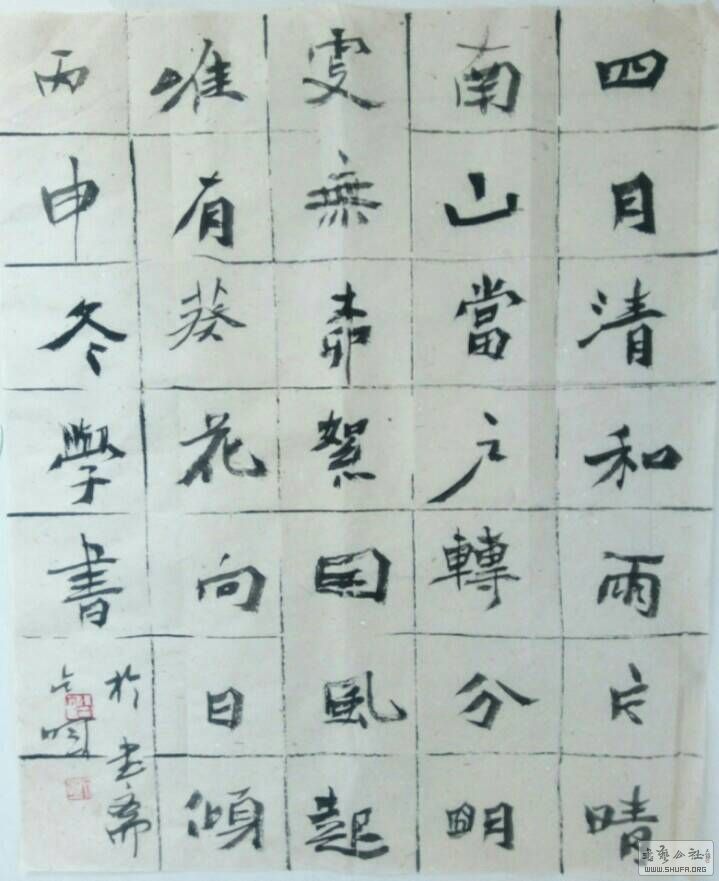 四月清和雨乍晴
南山當户轉分明
更無柳絮因風起
惟有葵花向日傾
丙申冬學書
於书斋
书艺公社
WWW.SHUFA.ORG